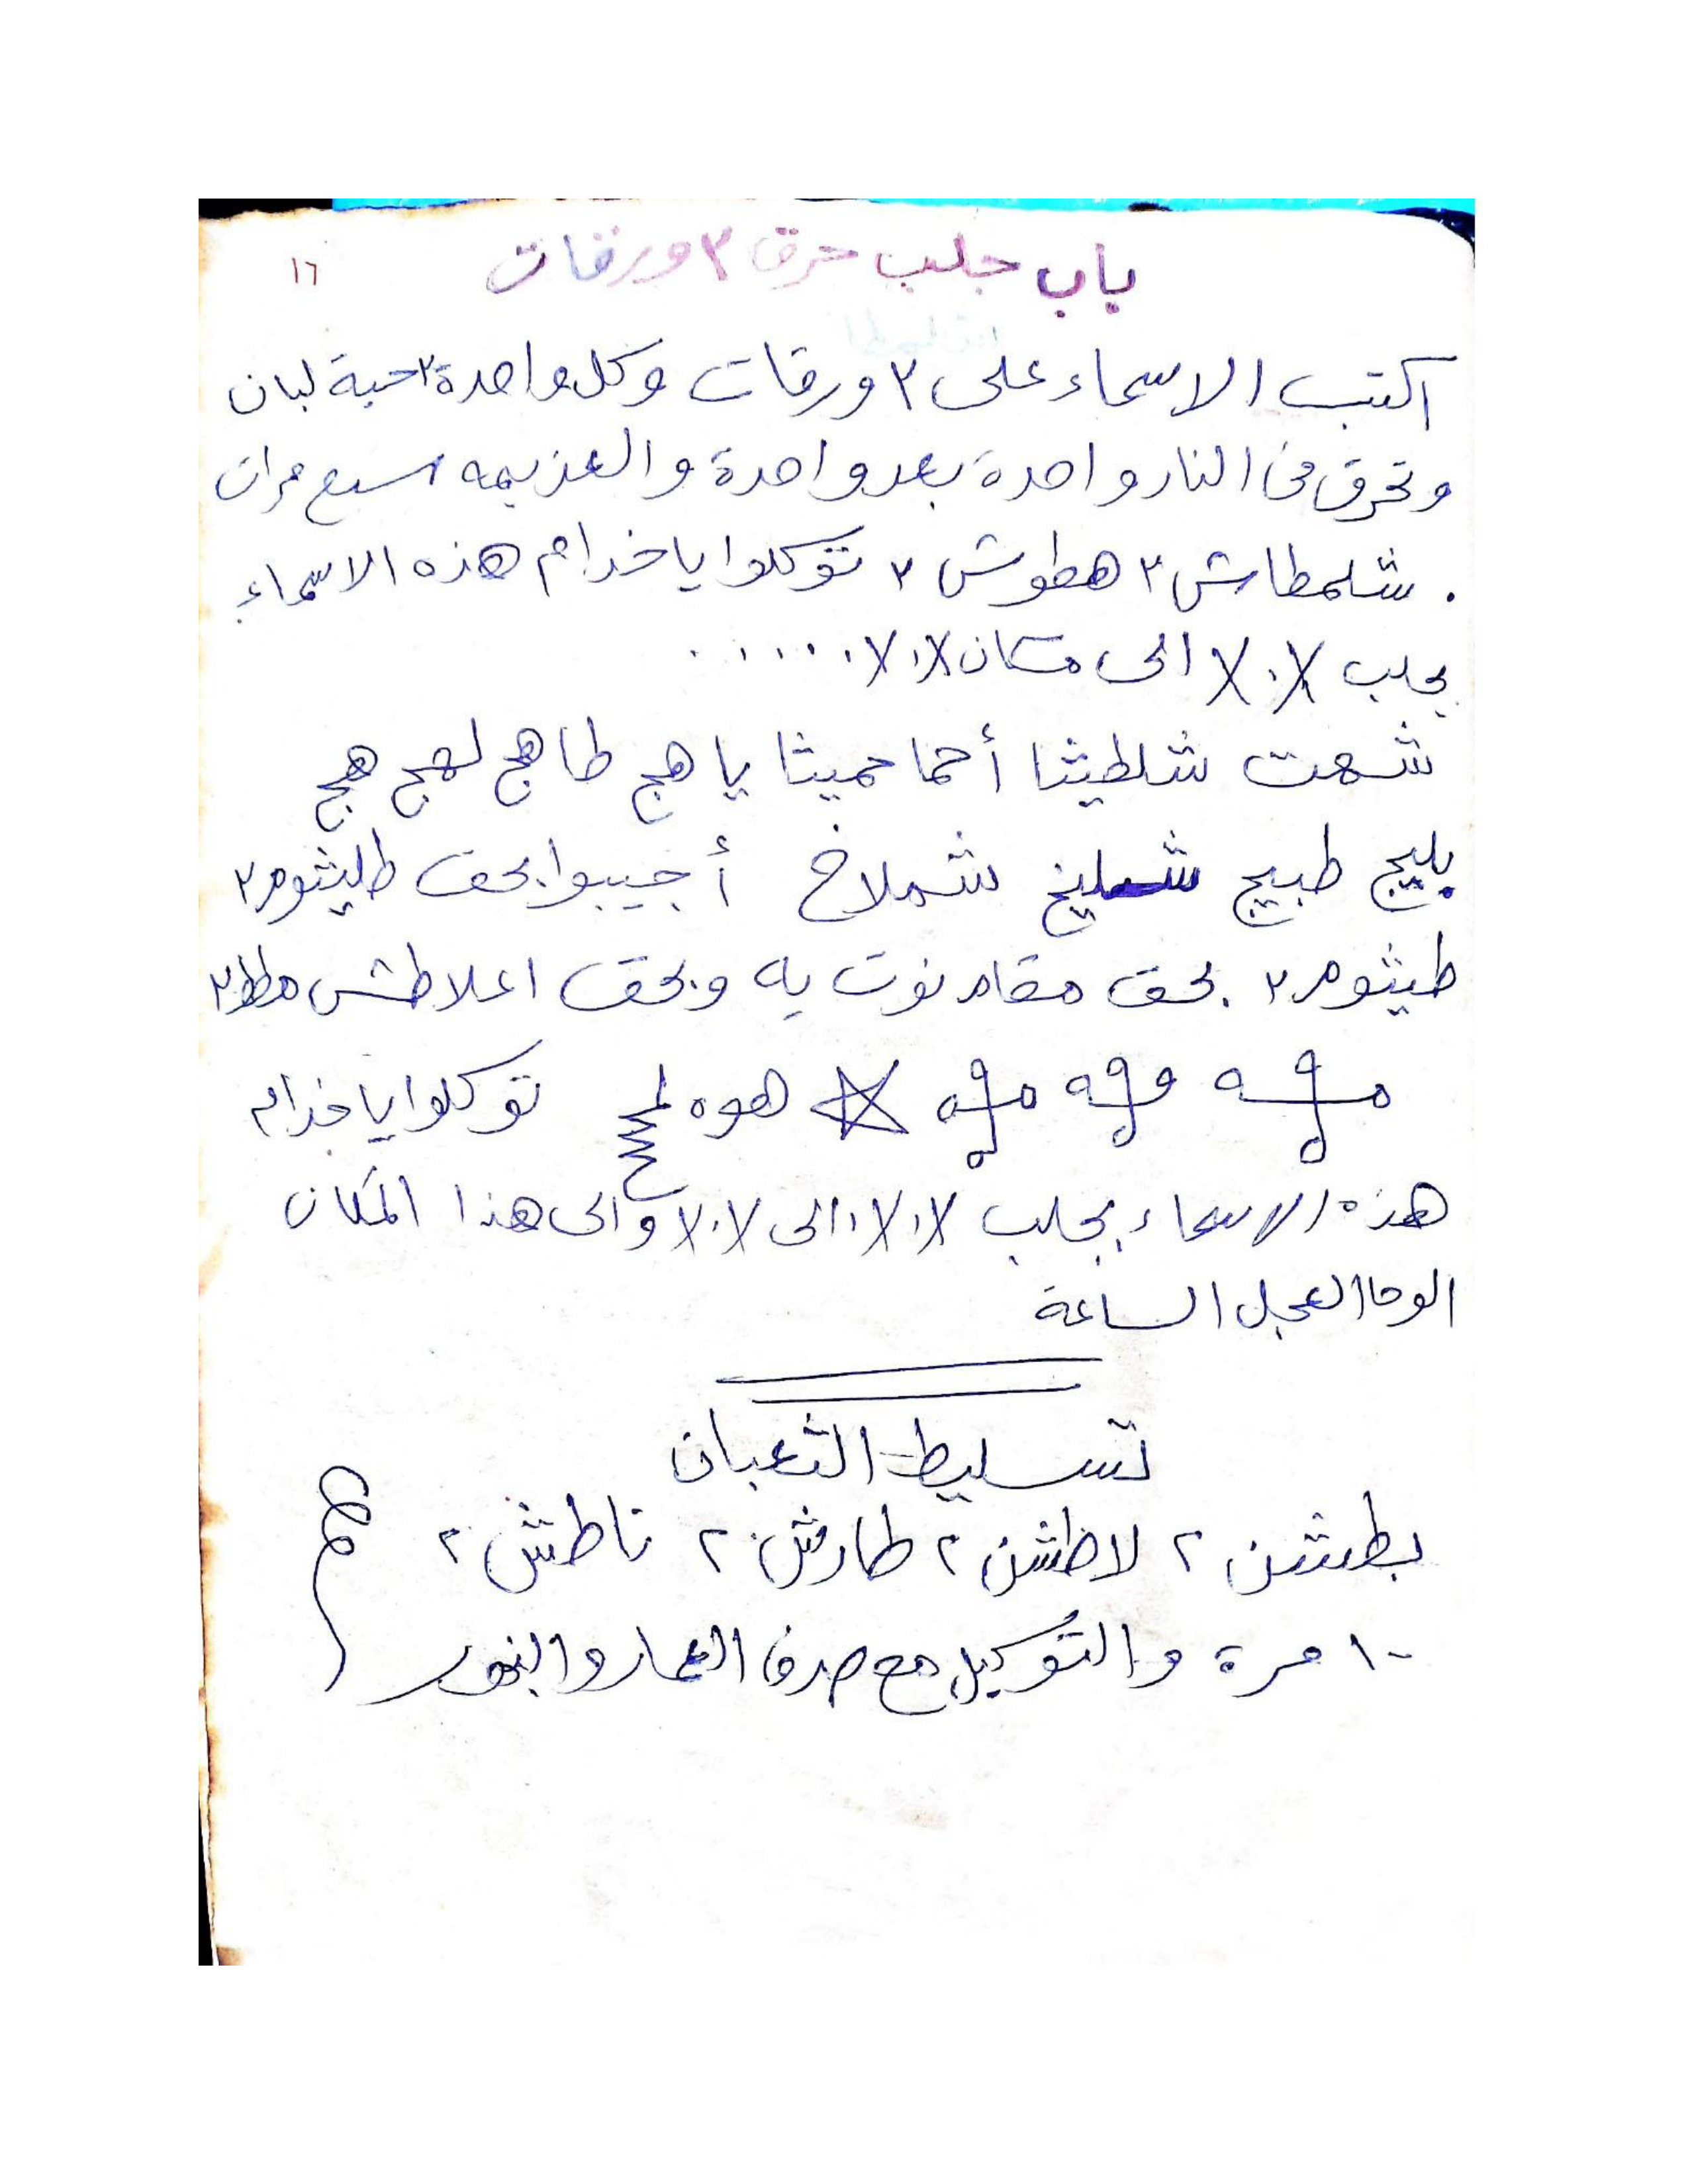 باب جلب حرق ٣ ورقات
١٦
اكتب الاسماء على ٣ ورقات وكل واحدة ٣ حبة لبان
وتحرق فى النار واحدة بعد واحدة والعزيمه سبع مرات
. شلمطاش ٢ هطوش ٢ توكلوا يا خدام هذه الاسماء
بجلب الى مكان ......
شهت شلطيثا أحما حميثا يا هج طاهج لهج هج
بليج طبيج شمليخ شملاخ أجيبوا بحق طليثوم ٢
طيثوم ٢ بحق مقام نوت يه وبحق اعلاطش مطط ٢
هوه توكلوا يا خدام
هذه الاسماء بجلب الى والى هذا المكان
الوحا العجل الساعة
تسليط الثعبان
بطشن ٢ لاظشن ٢ طارش ٢ ناطش ٢
١٠ مرة والتوكيل مع صرف العمار والبخور